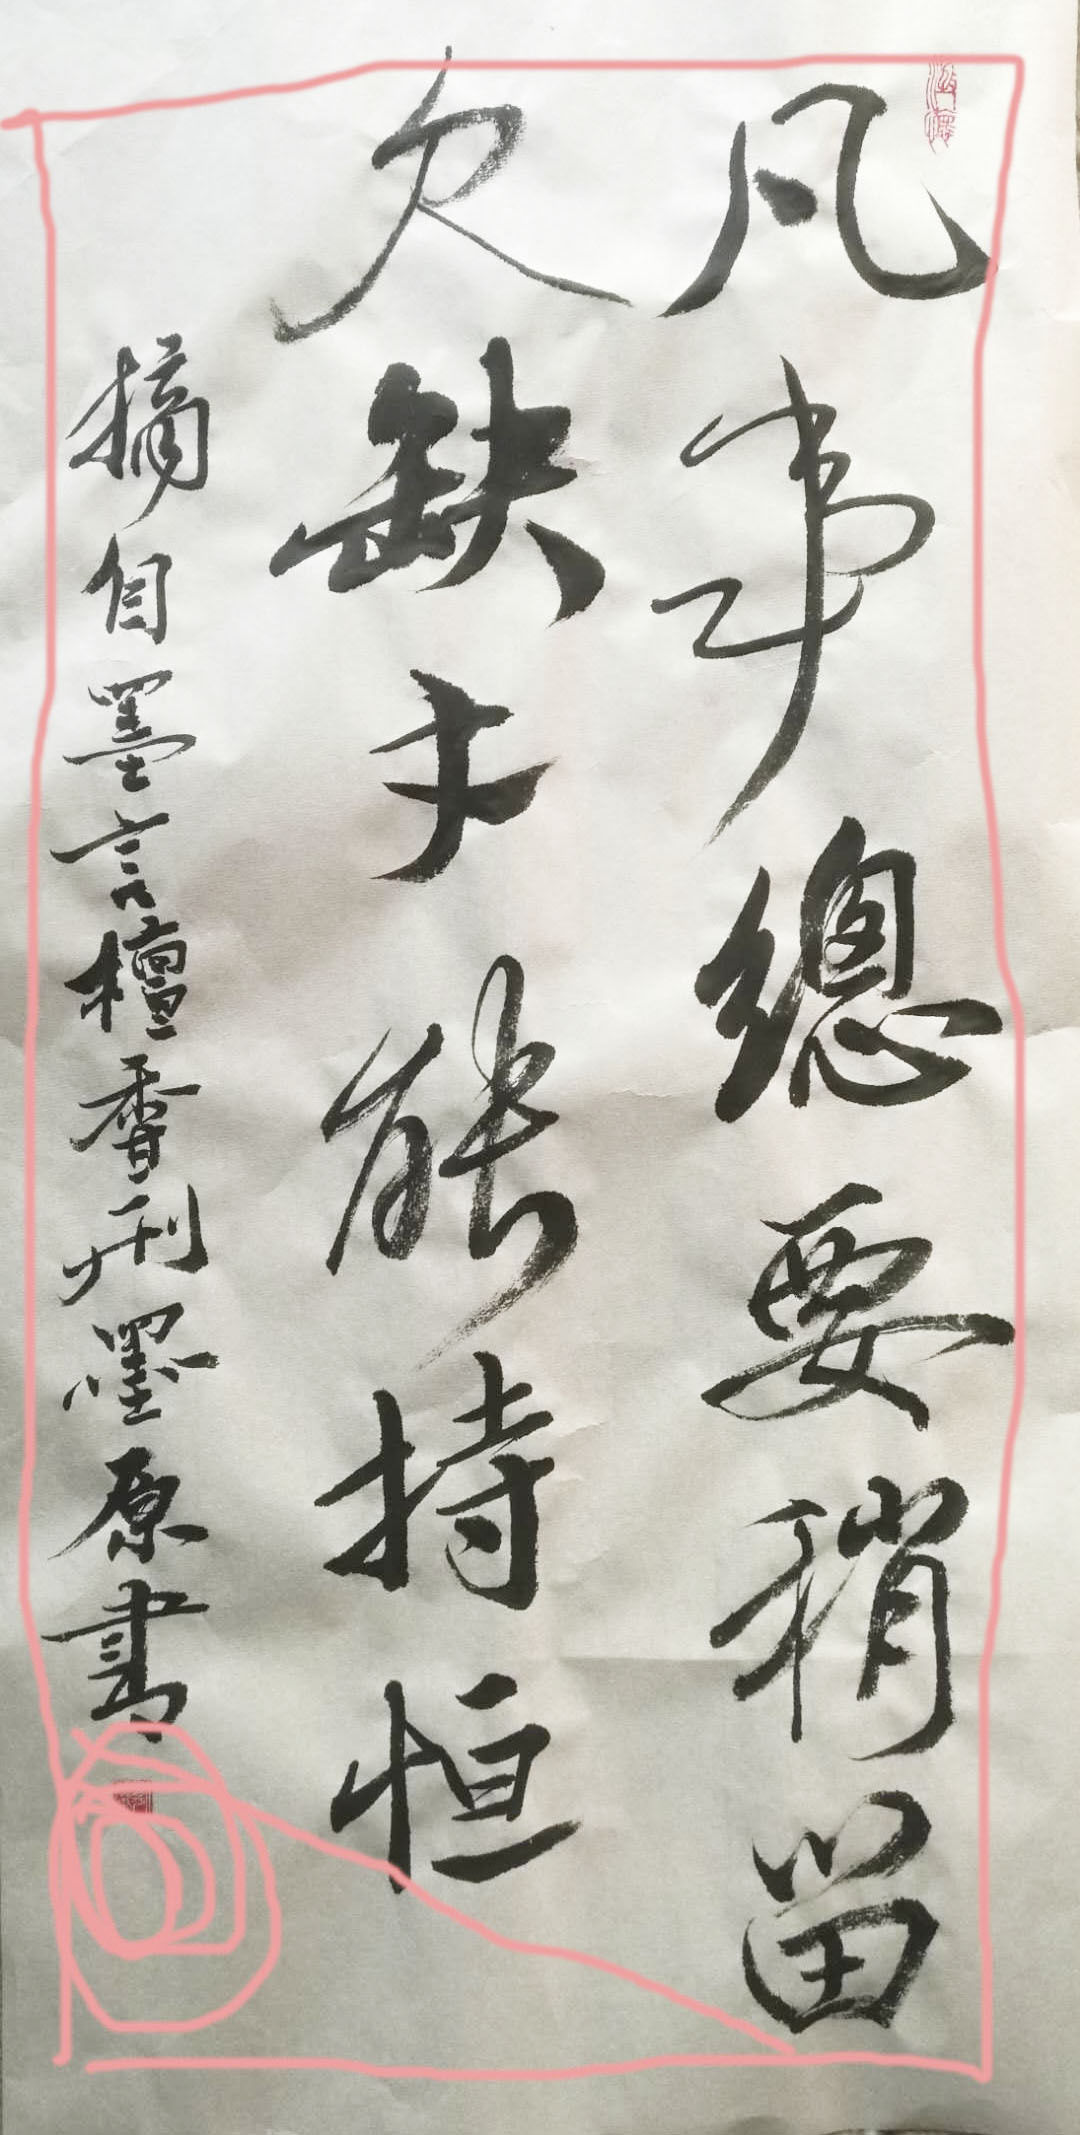 凡事總要稍留
欠缺才能持恒
摘自墨言檀香刑墨原書